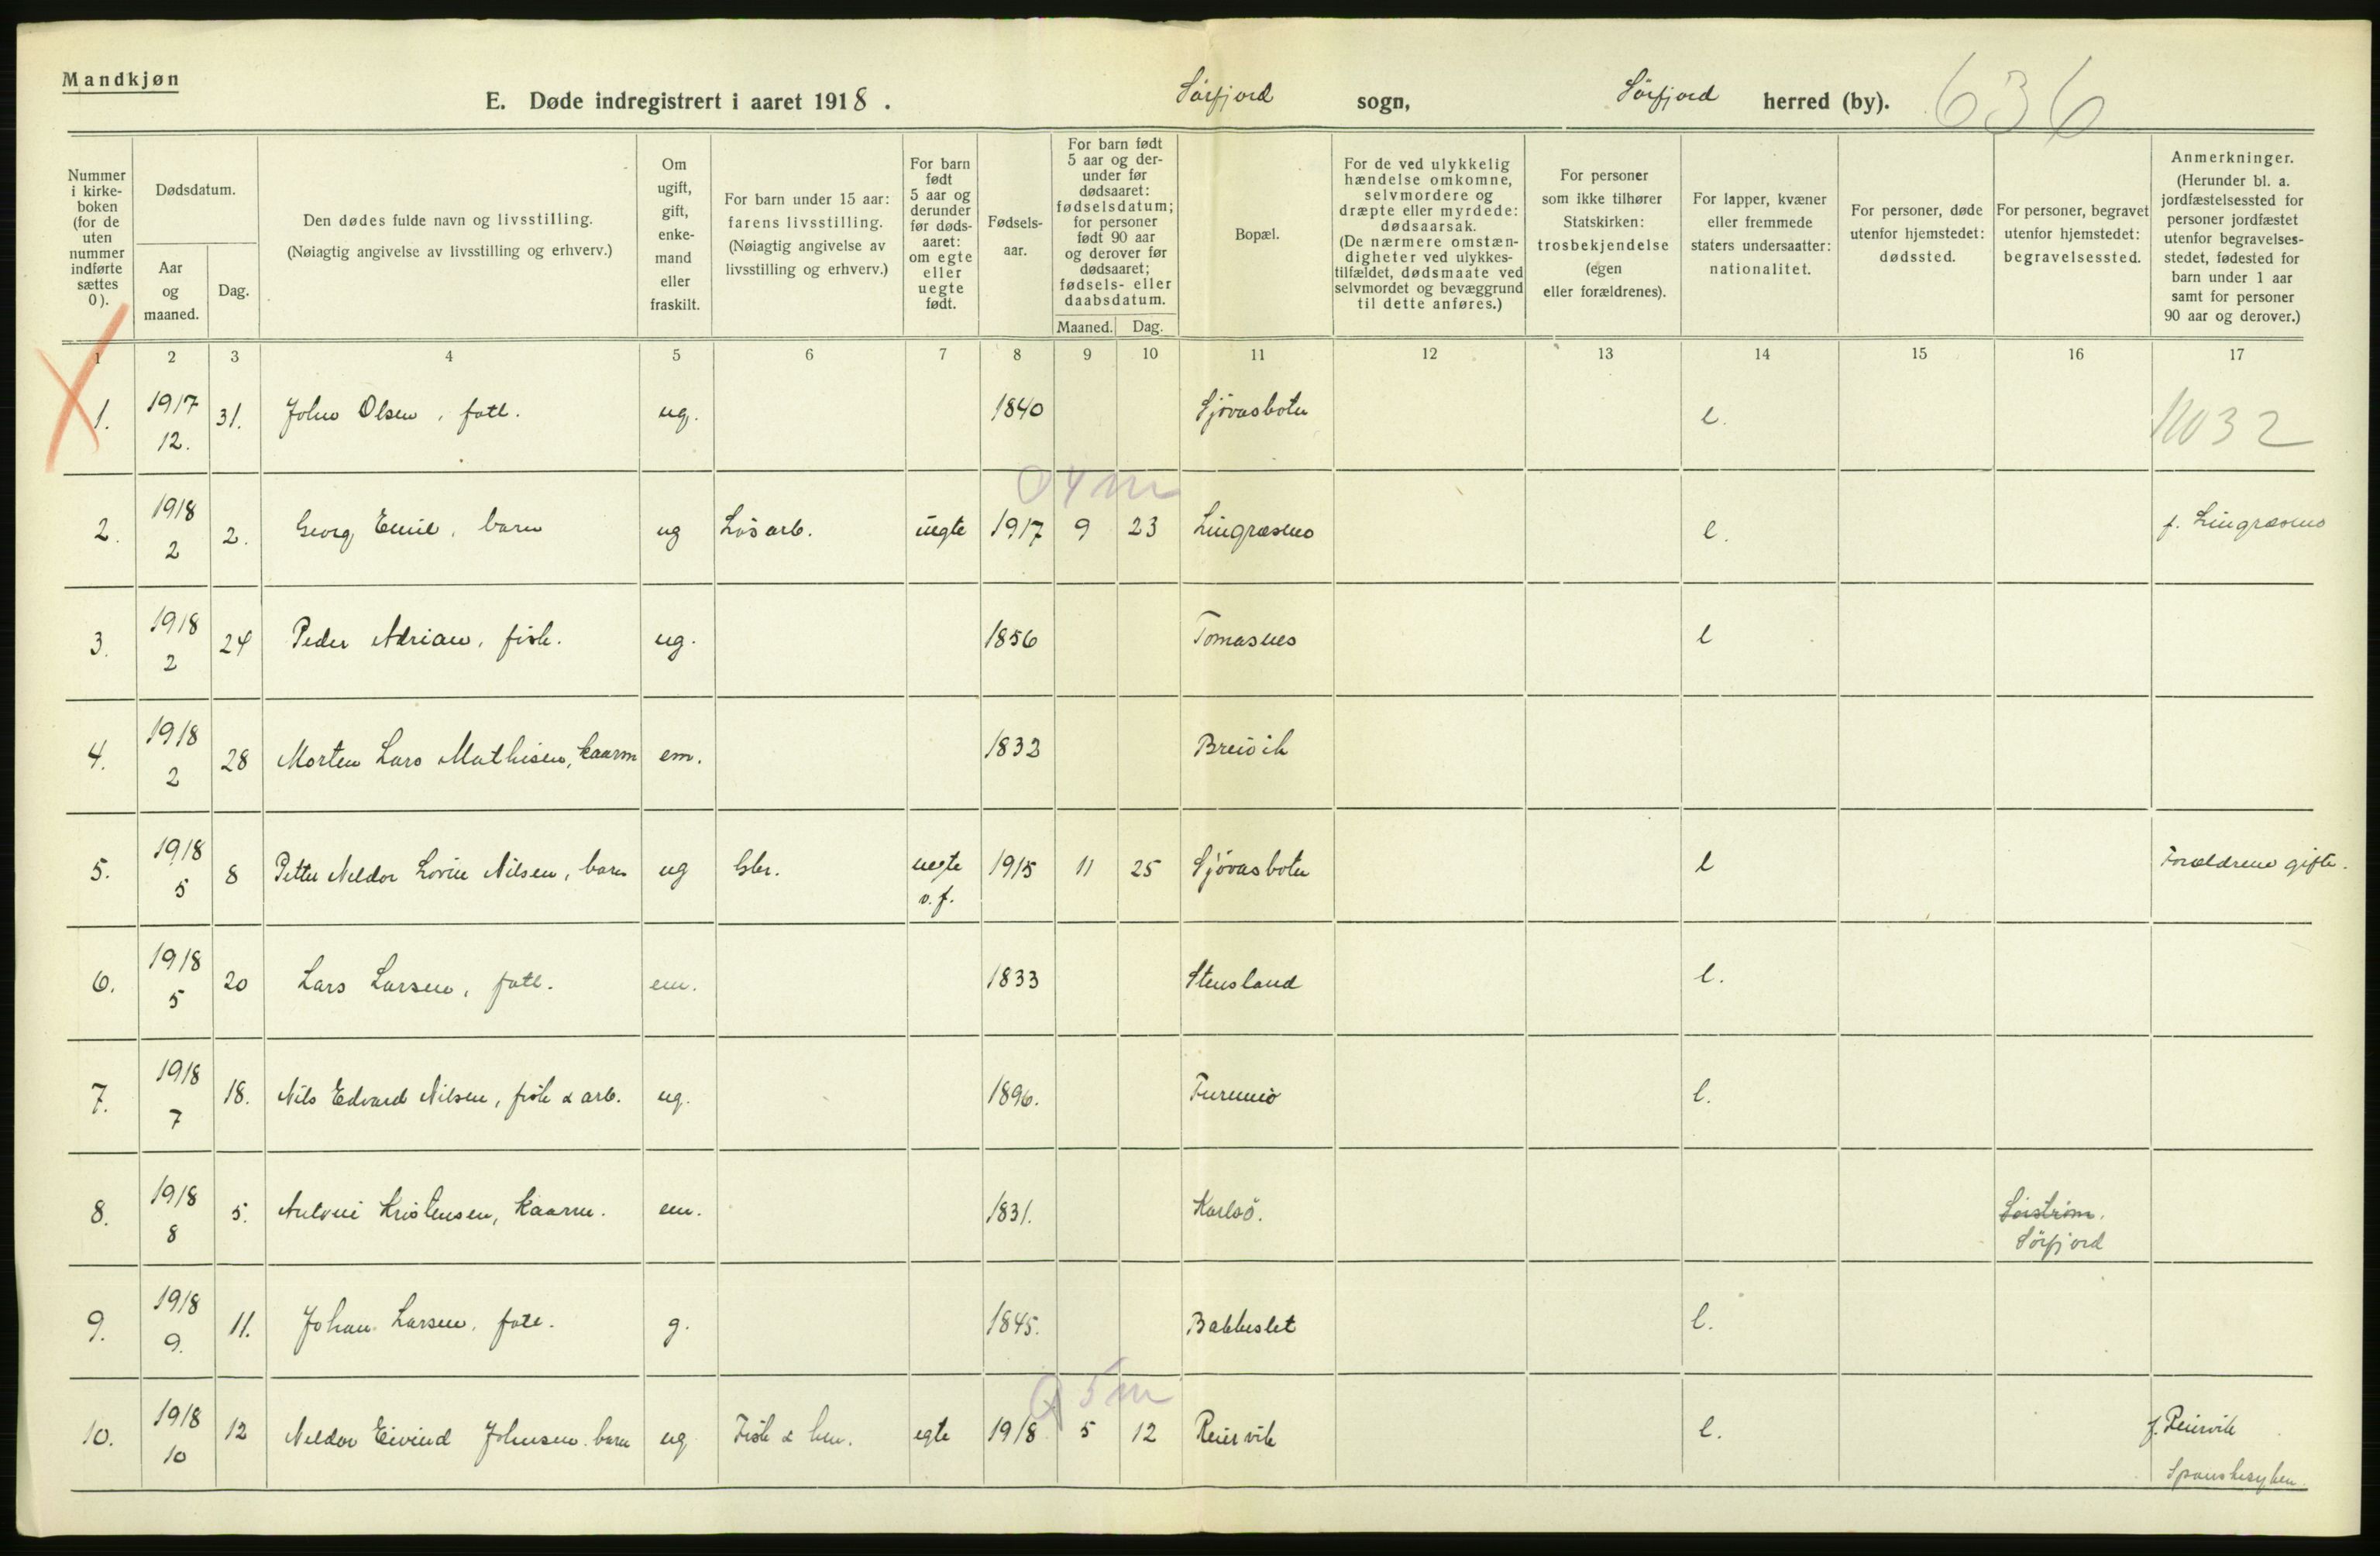 Mandkjøn
E. Døde indregistrert i aaret 1918. Sörfjord sogn, Sörfjord herred (by). 636
Nummer i kirke-boken (for de uten nummer indførte sættes 0).
Dødsdatum.
Aar og maaned.
Dag.
Den dødes fulde navn og livsstilling.
(Nøiagtig angivelse av livsstilling og erhverv.)
Om ugift, gift, enke-mand eller fraskilt.
For barn under 15 aar: farens livsstilling. (Nøiagtig angivelse av livsstilling og erhverv.)
For barn født 5 aar og derunder før døds-aaret: om egte eller uegte født.
Fødsels-aar.
For barn født 5 aar og der-under før dødsaaret: fødselsdatum; for personer født 90 aar og derover før dødsaaret; fødsels- eller daabsdatum.
Maaned. Dag.
Bopæl.
For de ved ulykkelig hændelse omkomne, selvmordere og dræpte eller myrdede: dødsaarsak. (De nærmere omstæn-digheter ved ulykkes-tilfældet, dødsmaate ved selvmordet og bevæggrund til dette anføres.)
For personer som ikke tilhører Statskirken: trosbekjendelse (egen eller forældrenes).
For lapper, kvæner eller fremmede staters undersaatter: nationalitet.
For personer, døde utenfor hjemstedet: dødssted.
For personer, begravet utenfor hjemstedet: begravelsessted.
Anmerkninger. (Herunder bl. a. jordfæstelsessted for personer jordfæstet utenfor begravelses-stedet, fødested for barn under 1 aar samt for personer 90 aar og derover.)
1 2 3 4 5 6 7 8 9 10 11 12 13 14 15 16 17
1. 1917 12. 31. John Olsen, fatl. ug. 1840 Sjövasbotn l. 1032
0 4 m
2. 1918 2 2. Georg Emil, barn ug Lösarb. uegte 1917 9 23 Lingrasnes l. f. Lingrasnes
3. 1918 2 24 Peder Adrian, fisk. ug. 1856 Tomasnes l
4. 1918 2 28 Morten Lars Mathisen, kaarm em. 1832 Breivik
5. 1918 5 8 Petter Meldor Lovin Nilsen, barn ug Gbr. uegte o. f. 1915 11 25 Sjövasbotn l Forældrene gifte.
6. 1918 5 20 Lars Larsen, fatl. em. 1833 Stensland l.
7. 1918 7 18. Nils Edvard Nilsen, fisk & arb. ug. 1896. l.
8. 1918 8 5. Antoni Kristensen, kaarm. em. 1831. Karlsö. Sörfjord
9. 1918 9. 11. Johan Larsen, fatl. g. 1845. Bakkeslet l.
0 5 m
10. 1918 10 12 Meldor Eivind Johnsen. barn ug Fisk & egte 1918 5 12 Reiervik l. f. Reiervik
Spanskesyken.